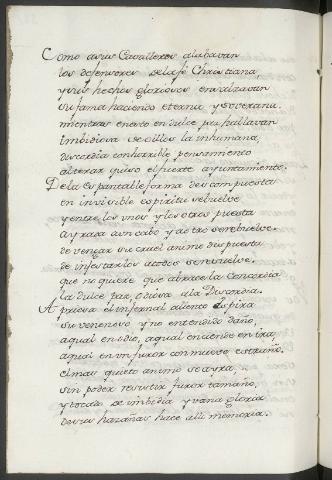 Como asus Cavalleros alabavan
los defensores dela fè Christiana,
y sus hechos gloriosos ensalzavan
su fama haciendo eterna y soverana.
mientras en esto en dulce paz hallavan
imbidiosa de ellos la inhumana,
discordia con horrible pensamiento
alterar quiso el fuerte ayuntamiento.
De la Espantable forma descompuesta
en invisible espiritu se buelve
y entre los unos y los otros puesta
ayrada a un cabo y a otro se rebuelve.
de vengar su cruel animo dispuesta
de infestarlos atodos se resuelve.
que no quiere que abrace la Concordia
la dulce paz, odiosa ala Discordia.
Apriesa el infernal aliento Espira
su venenoso y no entendido daño,
aqual en odio, aqual enciende en ira,
aqual en un furor conmueve estraño.
el mas quieto animo se ayra,
sin poder resistir furor tamaño,
y tocado de imbidia y vana gloria
de sus hazañas hace alli memoria.